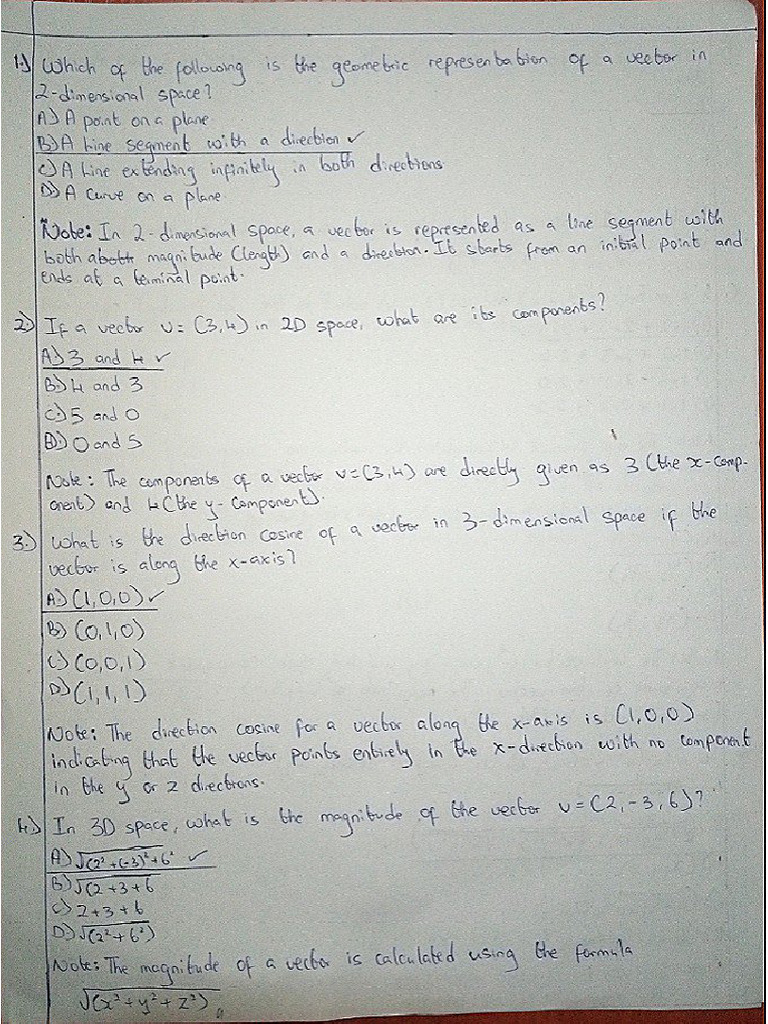 1.) Which of the following is the geometric representation of a vector in
2-dimensional space?
A) A point on a plane
B) A Line segment with a direction ✓
C) A Line extending infinitely in both directions
D) A curve on a plane.
Note: In 2-dimensional space, a vector is represented as a line segment with
both magnitude (length) and a direction. It starts from an initial point and
ends at a terminal point.
2.) If a vector v = (3,4) in 2D space, what are its components?
A) 3 and 4 ✓
B.) 4 and 3
C.) 5 and 0
D.) 0 and 5
Note: The components of a vector v=(3,4) are directly given as 3 (the x-comp-
onent) and 4 (the y-component).
3.) What is the direction cosine of a vector in 3-dimensional space if the
vector is along the x-axis?
A) (1,0,0) ✓
B) (0,1,0)
C) (0,0,1)
D) (1,1,1)
Note: The direction cosine for a vector along the x-axis is (1,0,0)
indicating that the vector points entirely in the x-direction with no component
in the y or z directions.
4.) In 3D space, what is the magnitude of the vector v = (2,-3,6)?
A) √(2² + (-3)² + 6² ✓
B) √(2 + 3 + 6
C) 2 + 3 + 6
D) √(2² + 6²)
Note: The magnitude of a vector is calculated using the formula
√(x² + y² + z²)